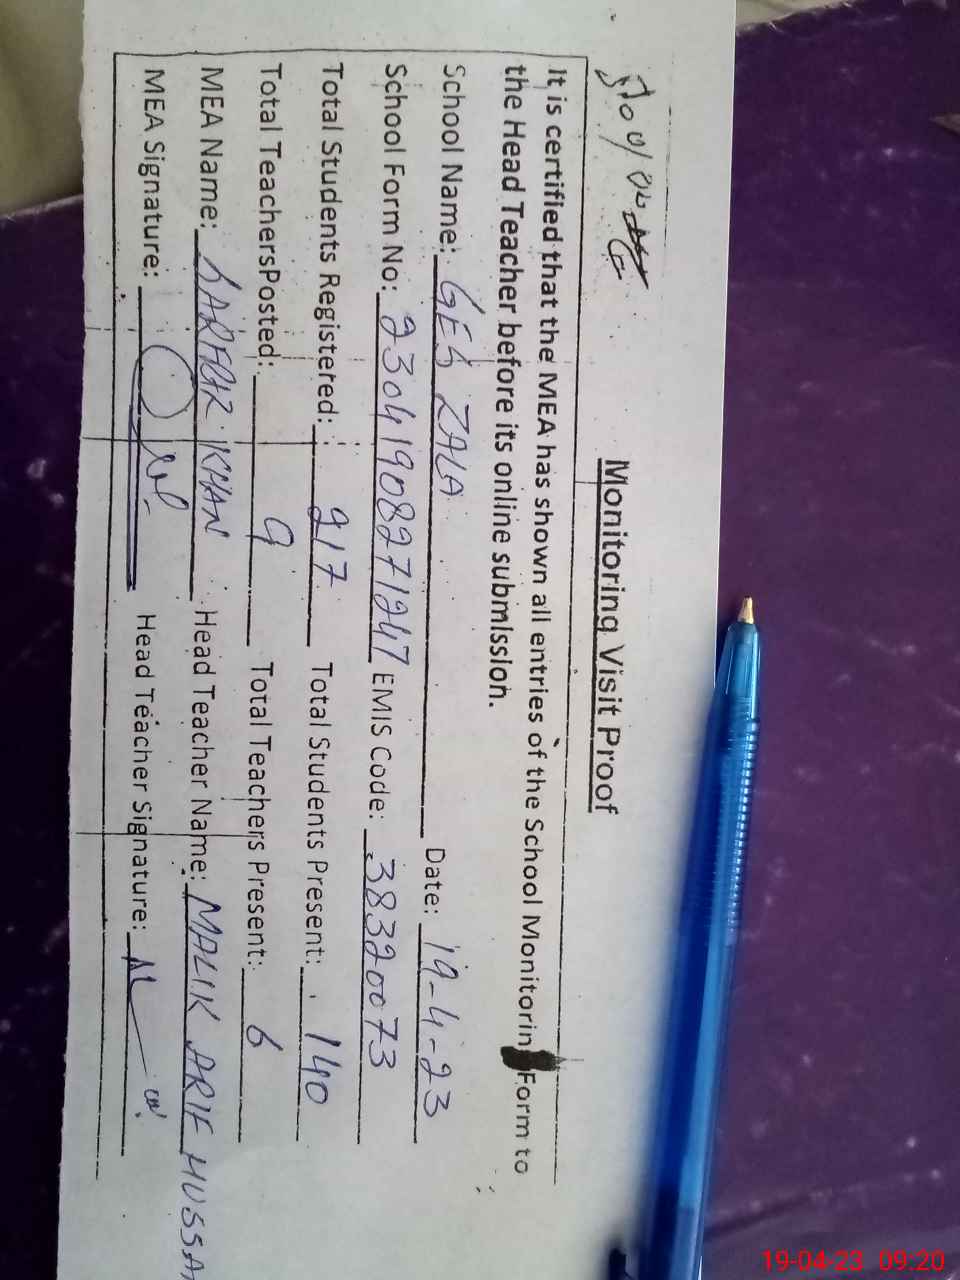 Monitoring Visit Proof
It is certified that the MEA has shown all entries of the School Monitorin Form to
the Head Teacher before its online submission.
School Name: GES ZALA Date: 19-4-23
School Form No: 23041908271247 EMIS Code: 38320073
Total Students Registered: 217 Total Students Present: 140
Total TeachersPosted: 9 Total Teachers Present: 6
MEA Name: KHAN Head Teacher Name: MALIK ARIF HUSSA
MEA Signature: Head Teacher Signature:
19-04-23 09:20